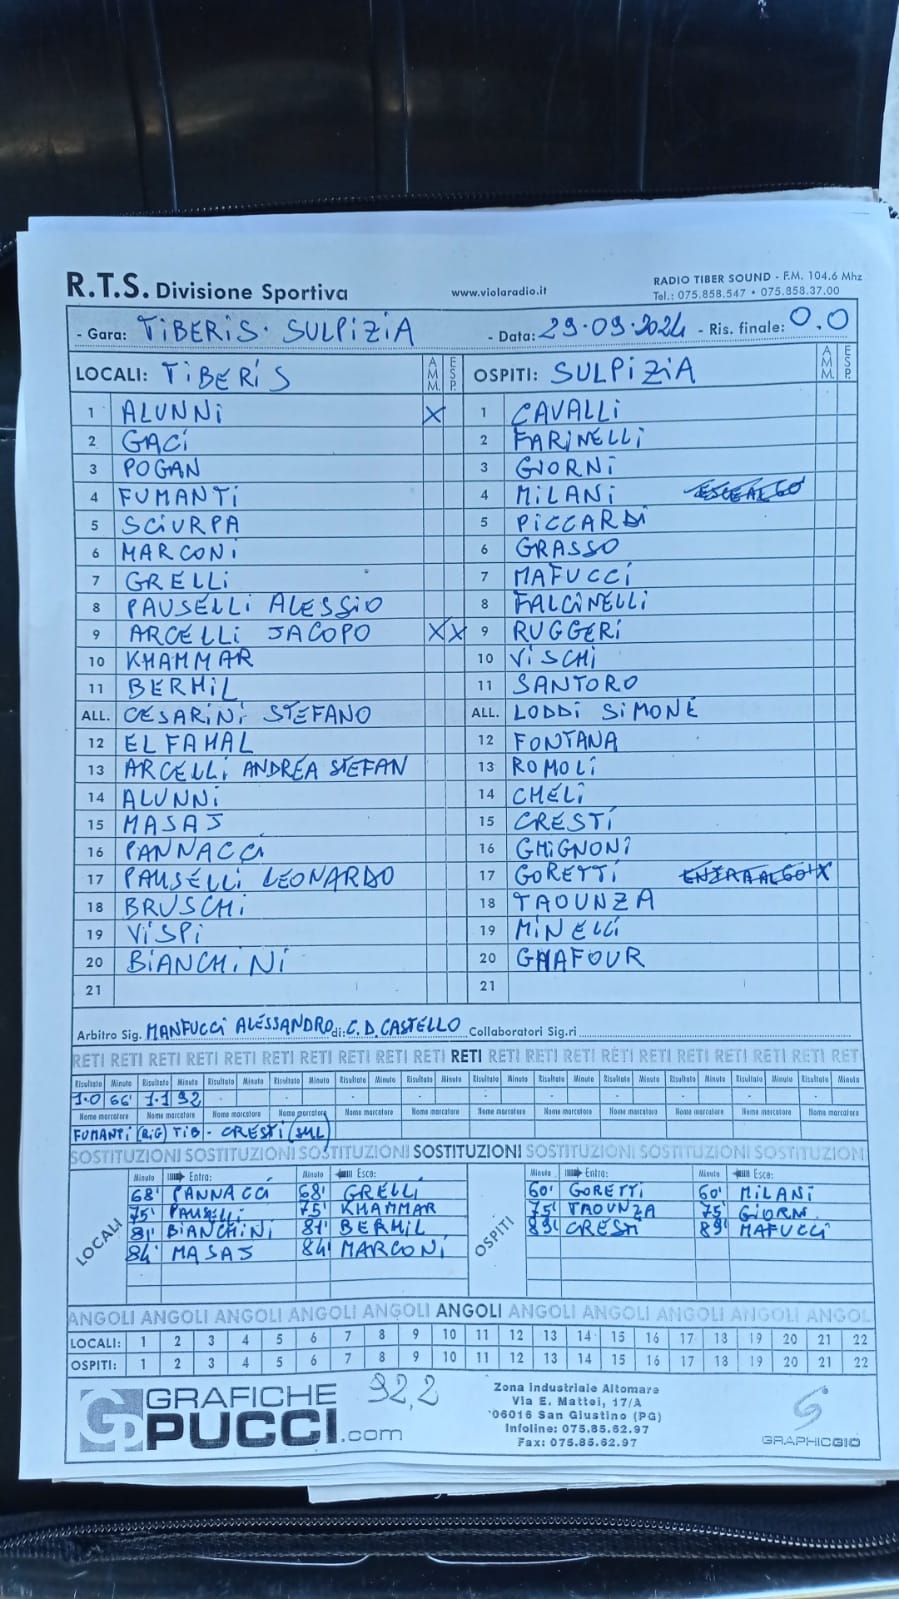 R.T.S. Divisione Sportiva www.violaradio.it RADIO TIBER SOUND - F.M. 104.6 Mhz
Tel.: 075.858.547 • 075.858.37.00
- Gara: TIBERIS - SULPIZIA - Data: 29-09-2024 - Ris. finale: 0.0
LOCALI: TIBERIS AMM. ESP. OSPITI: SULPIZIA AMM. ESP.
1 ALUNNI X 1 CAVALLI
2 GACI 2 FARINELLI
3 POGAN 3 GIORNI
4 FUMANTI 4 MILANI
5 SCIURPA 5 PICCARDI
6 MARCONI 6 GRASSO
7 GRELLI 7 MAFUCCI
8 PAUSELLI ALESSIO 8 FALCINELLI
9 ARCELLI JACOPO X X 9 RUGGERI
10 KHAMMAR 10 VISCHI
11 BERHIL 11 SANTORO
ALL. CESARINI STEFANO ALL. LODDI SIMONE
12 EL FAHAL 12 FONTANA
13 ARCELLI ANDREA STEFAN 13 ROMOLI
14 ALUNNI 14 CHELI
15 MASAS 15 CRESTI
16 PANNACCI 16 GHIGNONI
17 PAUSELLI LEONARDO 17 GORETTI
18 BRUSCHI 18 TAOUNZA
19 VISPI 19 MINELLI
20 BIANCHINI 20 GHAFOUR
21 21
Arbitro Sig. MANFUCCI ALESSANDRO di: C.D.CASTELLO Collaboratori Sig.ri
RETI RETI RETI RETI RETI RETI RETI RETI RETI RETI RETI RETI RETI RETI RETI RETI RETI RETI RETI RETI RET
Risultato Minuto Risultato Minuto Risultato Minuto Risultato Minuto Risultato Minuto Risultato Minuto Risultato Minuto Risultato Minuto Risultato Minuto Risultato Minuto Risultato Minuto Risultato Minuto
1.0 66' 1.1 92
Nome marcatore Nome marcatore Nome marcatore Nome marcatore Nome marcatore Nome marcatore Nome marcatore Nome marcatore Nome marcatore Nome marcatore Nome marcatore Nome marcatore
FUMANTI (RIG) TIB - CRESTI (SUL)
SOSTITUZIONI SOSTITUZIONI SOSTITUZIONI SOSTITUZIONI SOSTITUZIONI SOSTITUZIONI SOSTITUZION
LOCALI Minuto Entra: Minuto Esce: OSPITI Minuto Entra: Minuto Esce:
68' PANNACCI 68' GRELLI 60' GORETTI 60' MILANI
75' PAUSELLI 75' KHAMMAR 75' TAOUNZA 75' GIORNI
81' BIANCHINI 81' BERHIL 89' CRESTI 89' MAFUCCI
84' MASAS 84' MARCONI
ANGOLI ANGOLI ANGOLI ANGOLI ANGOLI ANGOLI ANGOLI ANGOLI ANGOLI ANGOLI ANGOL
LOCALI: 1 2 3 4 5 6 7 8 9 10 11 12 13 14 15 16 17 18 19 20 21 22
OSPITI: 1 2 3 4 5 6 7 8 9 10 11 12 13 14 15 16 17 18 19 20 21 22
GRAFICHE
PUCCI.com
92,2
Zona Industriale Altomare
Via E. Mattei, 17/A
06016 San Giustino (PG)
Infoline: 075.85.62.97
Fax: 075.85.62.97
GRAPHICGIO